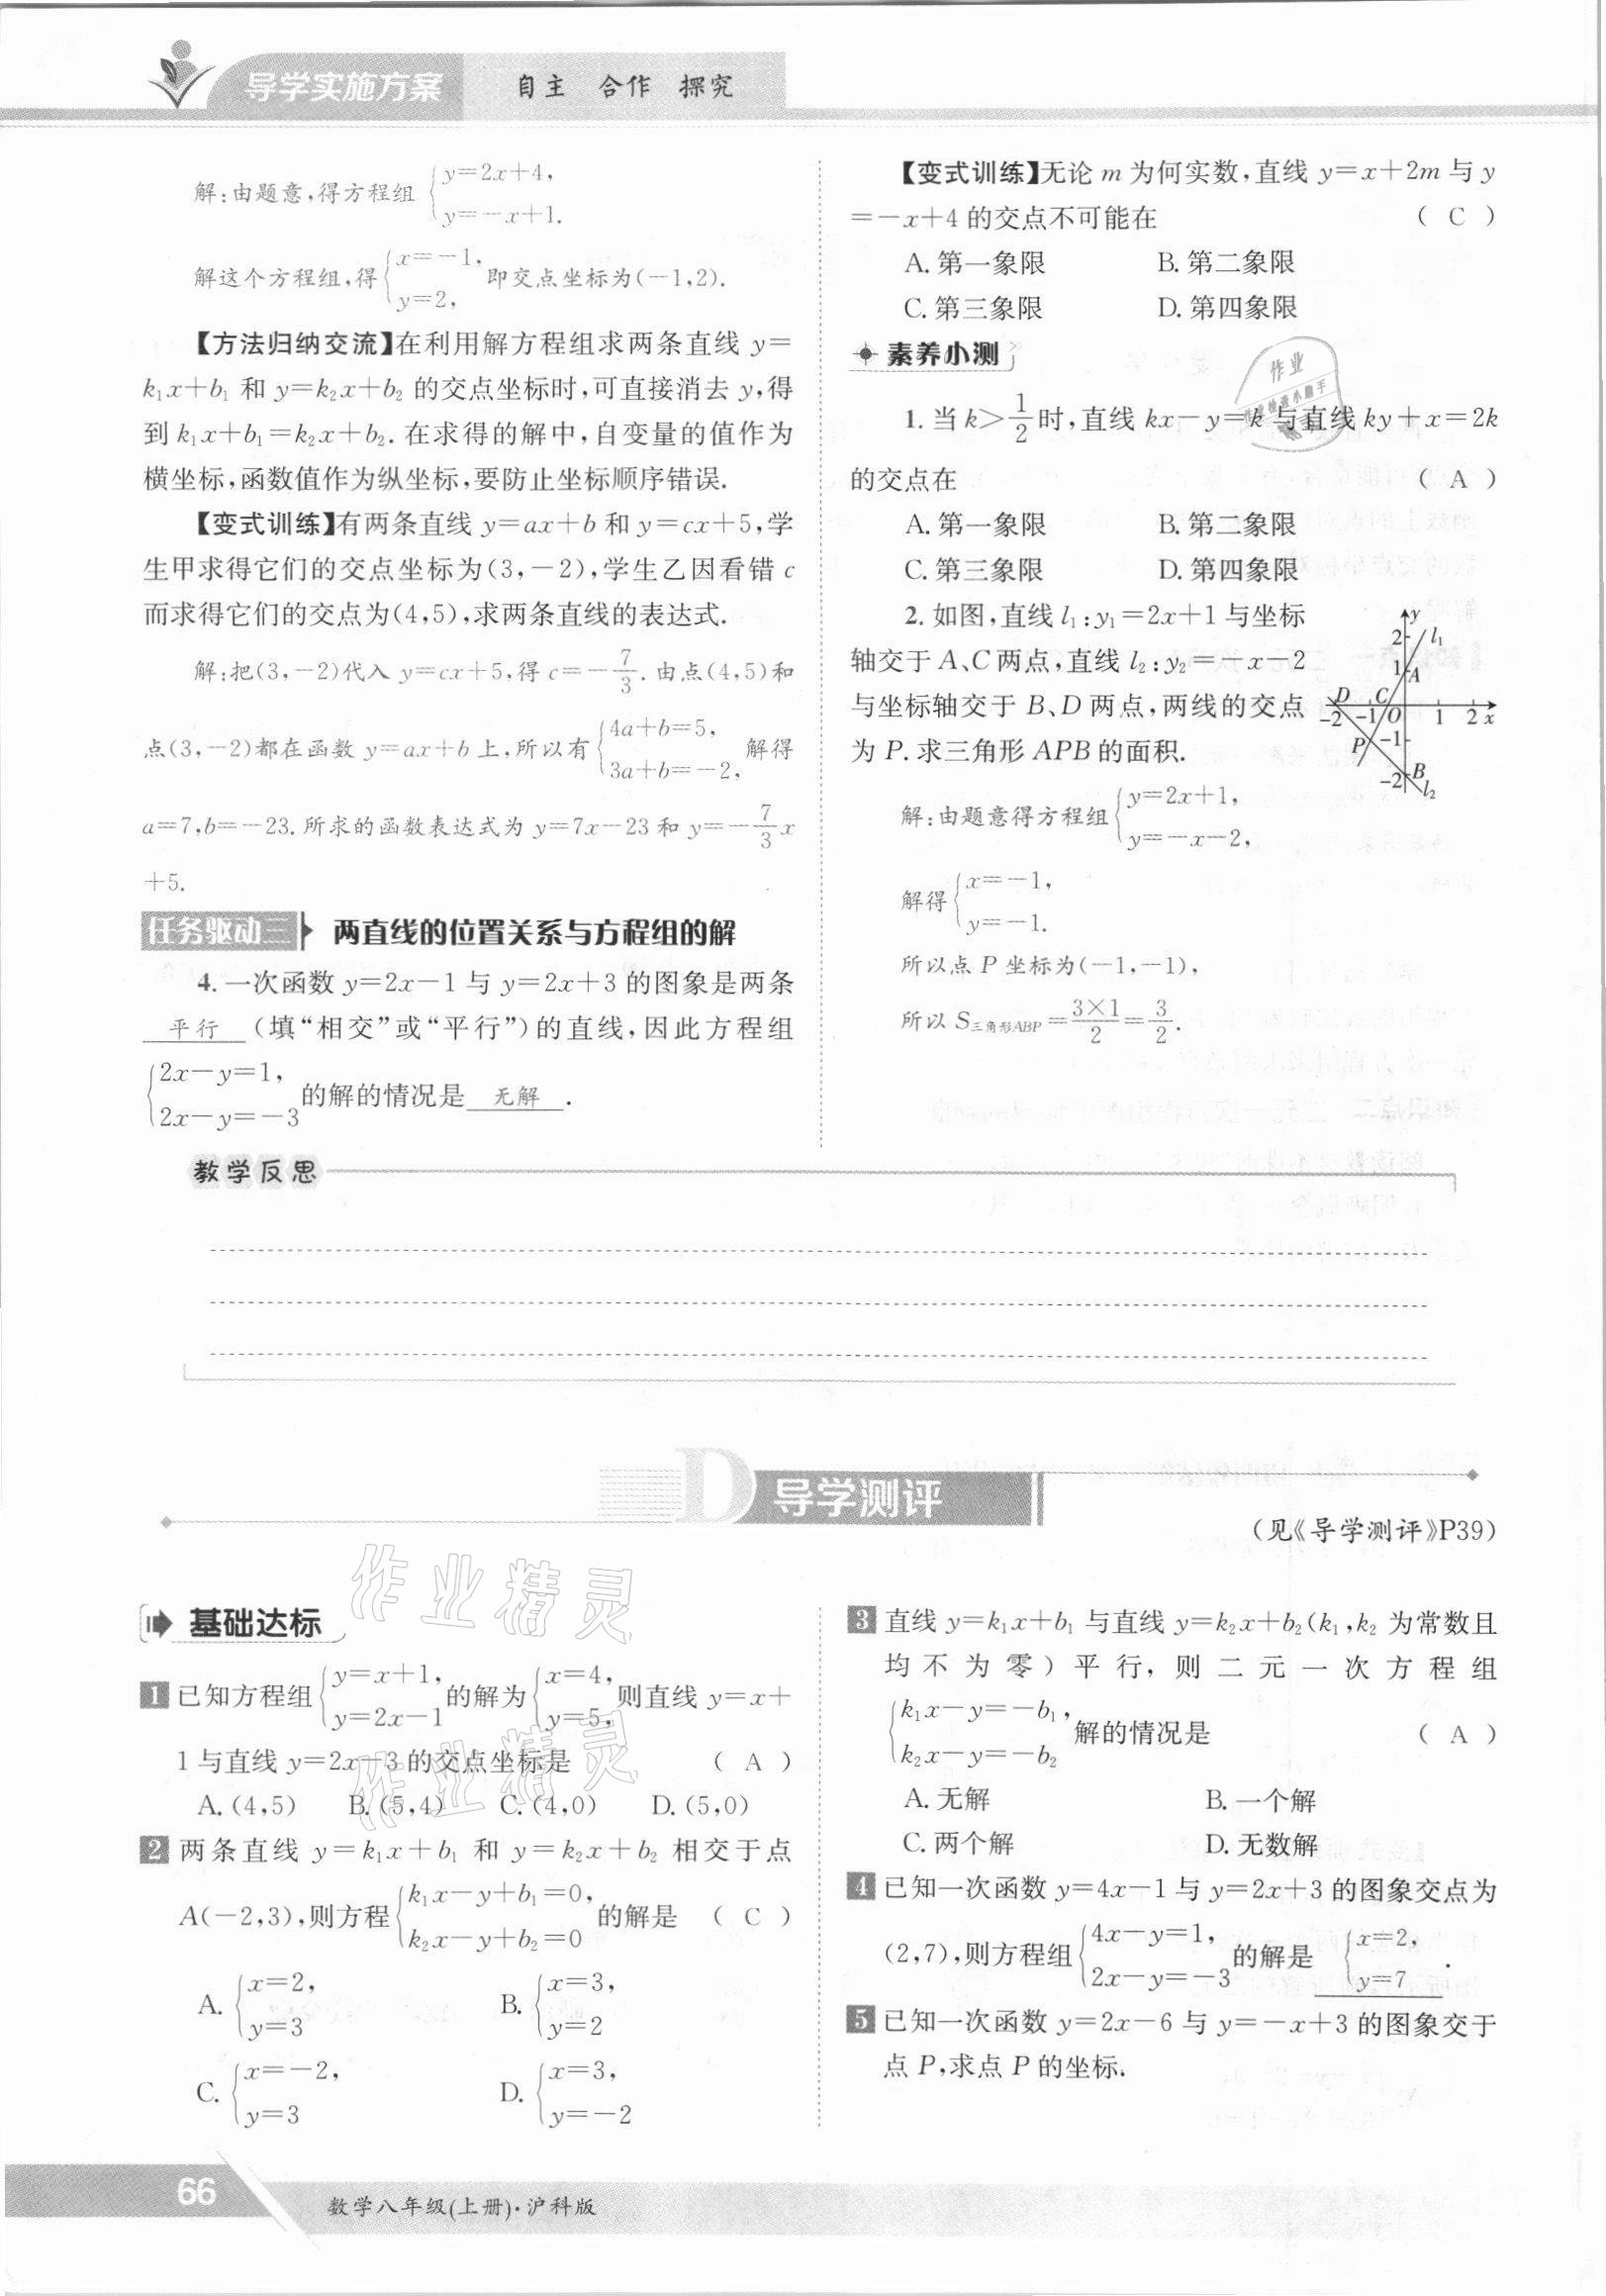 导学实施方案
自主 合作 探究
解:由题意,得方程组 {y=2x+4,
y=-x+1.
解这个方程组,得 {x=-1,
y=2, 即交点坐标为(-1,2).
【方法归纳交流】在利用解方程组求两条直线 y=
k₁x+b₁ 和 y=k₂x+b₂ 的交点坐标时,可直接消去 y,得
到 k₁x+b₁=k₂x+b₂. 在求得的解中,自变量的值作为
横坐标,函数值作为纵坐标,要防止坐标顺序错误.
【变式训练】有两条直线 y=ax+b 和 y=cx+5,学
生甲求得它们的交点坐标为(3,-2),学生乙因看错 c
而求得它们的交点为(4,5),求两条直线的表达式.
解:把(3,-2)代入 y=cx+5,得 c=-7/3. 由点(4,5)和
点(3,-2)都在函数 y=ax+b 上,所以有 {4a+b=5,
3a+b=-2, 解得
a=7,b=-23. 所求的函数表达式为 y=7x-23 和 y=-7/3 x
+5.
任务驱动三 两直线的位置关系与方程组的解
4. 一次函数 y=2x-1 与 y=2x+3 的图象是两条
平行 (填“相交”或“平行”)的直线,因此方程组
{2x-y=1,
2x-y=-3 的解的情况是 无解 .
【变式训练】无论 m 为何实数,直线 y=x+2m 与 y
=-x+4 的交点不可能在 ( C )
A. 第一象限 B. 第二象限
C. 第三象限 D. 第四象限
素养小测
1. 当 k>1/2 时,直线 kx-y=k 与直线 ky+x=2k
的交点在 ( A )
A. 第一象限 B. 第二象限
C. 第三象限 D. 第四象限
2. 如图,直线 l₁:y₁=2x+1 与坐标
轴交于 A、C 两点,直线 l₂:y₂=-x-2
与坐标轴交于 B、D 两点,两线的交点
为 P. 求三角形 APB 的面积.
y
2 l₁
1 A
D C
-2 -1 O 1 2 x
P -1
-2 B l₂
解:由题意得方程组 {y=2x+1,
y=-x-2,
解得 {x=-1,
y=-1.
所以点 P 坐标为(-1,-1),
所以 S三角形ABP=3×1/2=3/2.
教学反思
D 导学测评
(见《导学测评》P39)
基础达标
1 已知方程组 {y=x+1,
y=2x-1 的解为 {x=4,
y=5, 则直线 y=x+
1 与直线 y=2x-3 的交点坐标是 ( A )
A. (4,5) B. (5,4) C. (4,0) D. (5,0)
2 两条直线 y=k₁x+b₁ 和 y=k₂x+b₂ 相交于点
A(-2,3),则方程 {k₁x-y+b₁=0,
k₂x-y+b₂=0 的解是 ( C )
A. {x=2,
y=3 B. {x=3,
y=2
C. {x=-2,
y=3 D. {x=3,
y=-2
3 直线 y=k₁x+b₁ 与直线 y=k₂x+b₂(k₁,k₂ 为常数且
均不为零)平行,则二元一次方程组
{k₁x-y=-b₁,
k₂x-y=-b₂ 解的情况是 ( A )
A. 无解 B. 一个解
C. 两个解 D. 无数解
4 已知一次函数 y=4x-1 与 y=2x+3 的图象交点为
(2,7),则方程组 {4x-y=1,
2x-y=-3 的解是 {x=2,
y=7 .
5 已知一次函数 y=2x-6 与 y=-x+3 的图象交于
点 P,求点 P 的坐标.
作业精灵
作业精灵
作业
66
数学八年级(上册)·沪科版